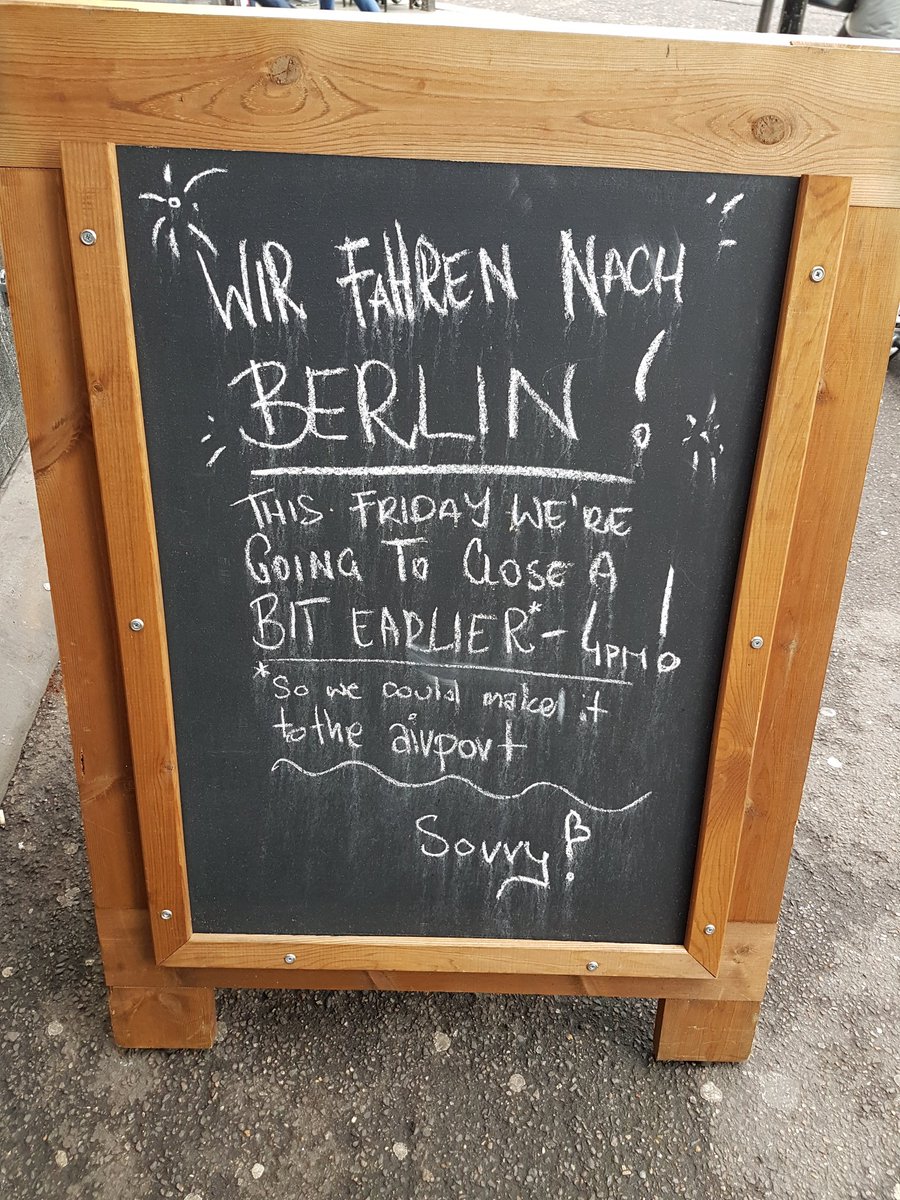 WIR FAHREN NACH
BERLIN!
THIS FRIDAY WE'RE
GOING TO CLOSE A
BIT EARLIER* - 4PM!
*so we could make it
to the airport
Sorry!